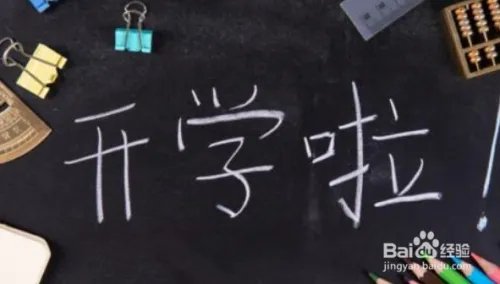 开学啦
Baidu经验
jingyan.baidu.com